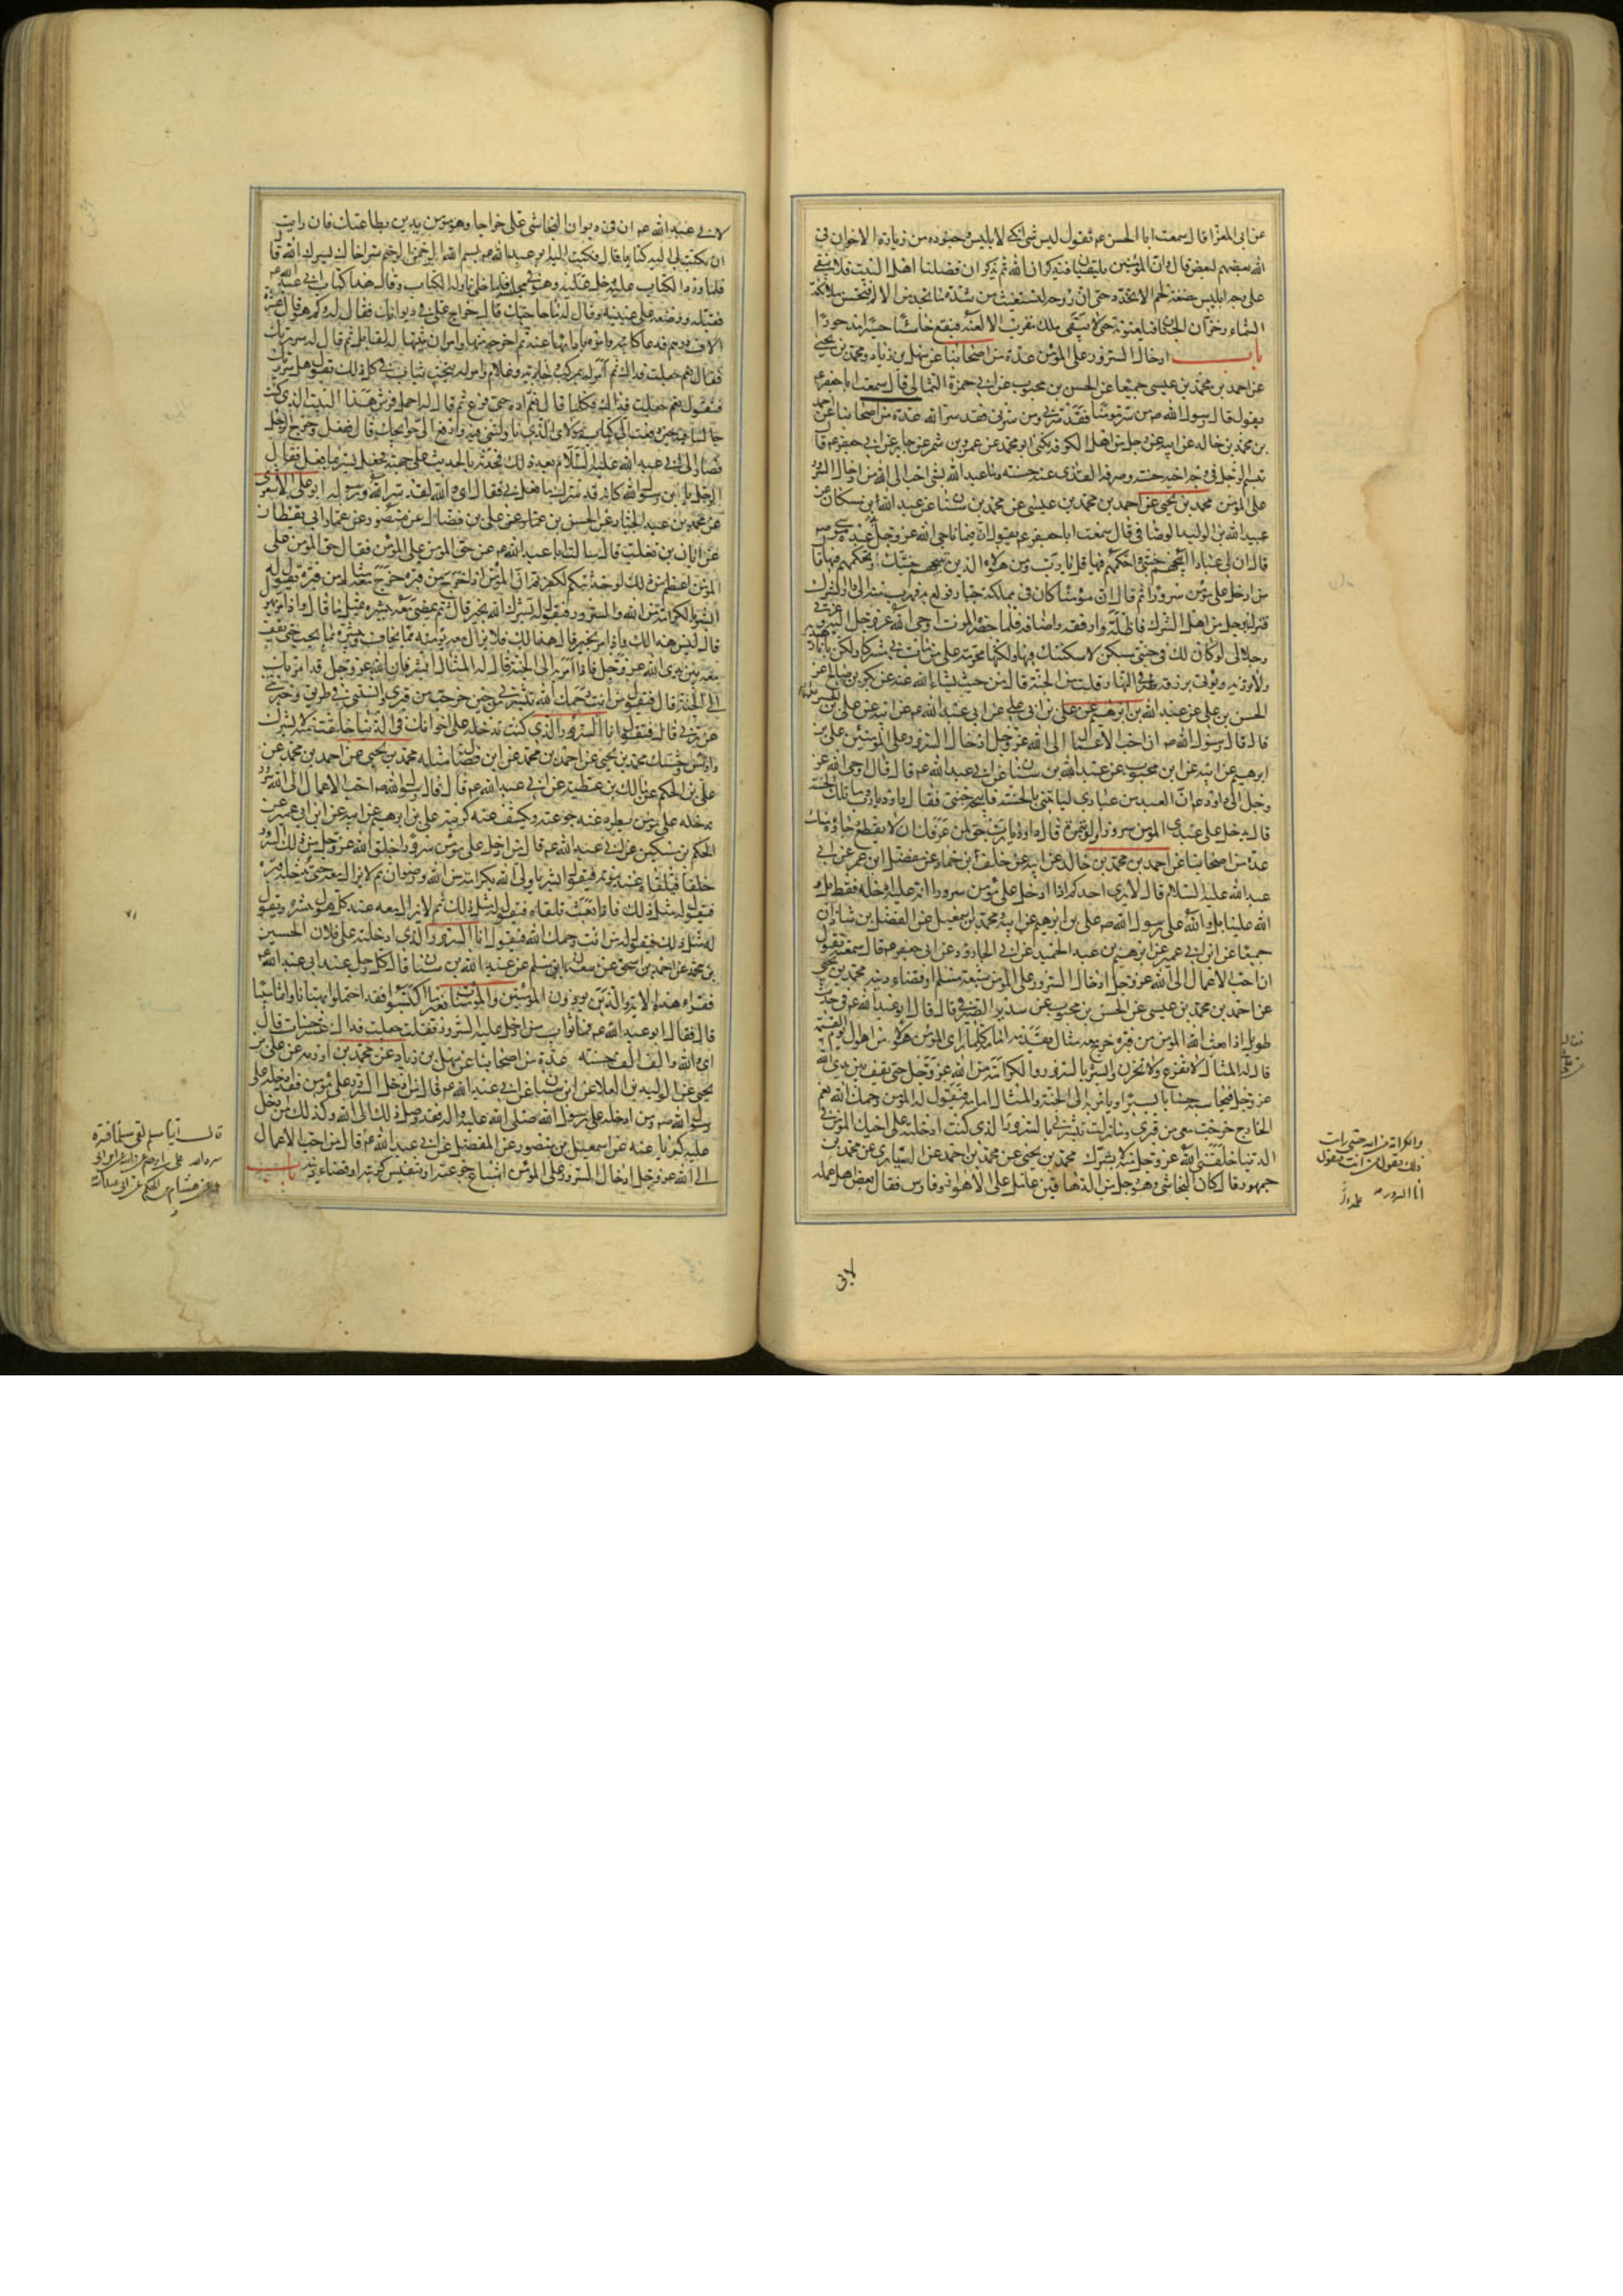 عن ابي المغرا قال سمعت ابا الحسن عم يقول ليس شئ انكي لابليس وجنوده من زيارة الاخوان في
الله بعضهم لبعض قال وان المؤمنين يلتقيان فيذكران الله ثم يذكران فضلنا اهل البيت فلا يبقي
علي وجه ابليس مضغة لحم الا تخدد حتى ان روحه لتستغيث من شدة ما تجد من الالم فتحس ملائكة
السماء وخزان الجنان فيلعنونه حتى لا يبقى ملك مقرب الا لعنه فيقع خاسئا حسيرا مدحورا
باب ادخال السرور على المؤمن عدة من اصحابنا عن سهل بن زياد ومحمد بن يحيى
عن احمد بن محمد بن عيسى جميعا عن الحسن بن محبوب عن ابي حمزة الثمالي قال سمعت ابا جعفر عم
يقول قال رسول الله ص من سر مؤمنا فقد سرني ومن سرني فقد سر الله عدة من اصحابنا عن احمد
بن محمد بن خالد عن ابيه عن رجل من اهل الكوفة يكنى ابو محمد عن عمرو بن شمر عن جابر عن ابي جعفر عم قال
تبسم الرجل في وجه اخيه حسنة وصرف القذى عنه حسنة وما عبد الله بشئ احب الى الله من ادخال السرور
على المؤمن محمد بن يحيى عن احمد بن محمد بن عيسى عن محمد بن سنان عن عبد الله بن مسكان عن
عبيد الله بن الوليد الوصافي قال سمعت ابا جعفر عم يقول ان فيما ناجى الله عز وجل عبده موسى
قال ان لي عبادا ابيحهم جنتي واحكمهم فيها قال يا رب ومن هؤلاء الذين تبيحهم جنتك وتحكمهم فيها قال
من ادخل على مؤمن سرورا ثم قال ان مؤمنا كان في مملكة جبار فولع به فهرب منه الى دار الشرك
فنزل برجل من اهل الشرك فاظله وارفقه واضافه فلما حضره الموت اوحى الله عز وجل اليه وعزتي
وجلالي لو كان لك في جنتي مسكن لاسكنتك فيها ولكنها محرمة على من مات بي مشركا ولكن يا نار
ولا تؤذيه ويؤتى برزقه طرفي النهار قلت من الجنة قال من حيث يشاء الله عنه عن بكر بن صالح عن
الحسن بن علي عن عبد الله بن ابرهيم عن علي بن ابي علي عن ابي عبد الله عم عن ابيه عن علي بن الحسين
قال قال رسول الله ص ان احب الاعمال الى الله عز وجل ادخال السرور على المؤمنين علي بن
ابرهيم عن ابيه عن ابن محبوب عن عبد الله بن سنان عن ابي عبد الله عم قال قال اوحى الله عز
وجل الى داود عم ان العبد من عبادي لياتيني بالحسنة فابيحه جنتي فقال داود يا رب وما تلك الحسنة
قال يدخل على عبدي المؤمن سرورا ولو بتمرة قال داود يا رب حق لمن عرفك ان لا يقطع رجاءه منك
عدة من اصحابنا عن احمد بن محمد بن خالد عن ابيه عن خلف بن حماد عن مفضل ابن عمر عن ابي
عبد الله عليه السلام قال لا يرى احدكم اذا ادخل على مؤمن سرورا انه عليه ادخله فقط بل و
الله علينا بل والله على رسول الله ص علي بن ابرهيم عن ابيه ومحمد بن اسمعيل عن الفضل بن شاذان
جميعا عن ابن ابي عمير عن ابرهيم بن عبد الحميد عن ابي الجارود عن ابي جعفر عم قال سمعته يقول
ان احب الاعمال الى الله عز وجل ادخال السرور على المؤمن شبعة مسلم او قضاء دينه محمد بن يحيى
عن احمد بن محمد بن عيسى عن الحسن بن محبوب عن سدير الصيرفي قال قال ابو عبد الله عم في حديث
طويل اذا بعث الله المؤمن من قبره خرج معه مثال يقدمه امامه كلما راى المؤمن هولا من اهوال يوم القيمة
قال له المثال لا تفزع ولا تحزن وابشر بالسرور والكرامة من الله عز وجل حتى يقف بين يدي الله
عز وجل فيحاسبه حسابا يسيرا ويامر به الى الجنة والمثال امامه فيقول له المؤمن رحمك الله نعم
الخارج خرجت معي من قبري وما زلت تبشرني بالسرور الذي كنت ادخلته على اخيك المؤمن في
الدنيا خلقني الله عز وجل منه لابشرك محمد بن يحيى عن محمد بن احمد عن السياري عن محمد بن
جمهور قال كان النجاشي وهو رجل من الدهاقين عاملا على الاهواز وفارس فقال بعض اهل عمله
والكرامة من الله حتى رايت
ذلك ويقول من انت فيقول
انا السرور
لابي عبد الله عم ان في ديوان النجاشي على خراجا وهو مؤمن يدين بطاعتك فان رايت
ان تكتب لي اليه كتابا قال فكتب اليه ابو عبد الله عم بسم الله الرحمن الرحيم سر اخاك يسرك الله قال
فلما ورد الكتاب عليه دخل عليه وهو في مجلسه فلما خلي ناوله الكتاب وقال هذا كتاب ابي عبد الله عم
فقبله ووضعه على عينيه وقال له ما حاجتك قال خراج على في ديوانك فقال له وكم هو قال عشرة
الاف درهم فدعا كاتبه وامره بادائها عنه ثم اخرجه منها وامر ان يثبتها له لقابل ثم قال له سررتك
فقال نعم جعلت فداك ثم امر له بمركب وجارية وغلام وامر له بتخت ثياب في كل ذلك يقول هل سررتك
فيقول نعم جعلت فداك فكلما قال نعم زاده حتى فرغ ثم قال له احمل فرش هذا البيت الذي كنت
جالسا فيه حين دفعت الى كتاب مولاي الذي ناولتني فيه وارفع الى حوائجك قال ففعل وخرج الرجل
فصار الى ابي عبد الله عليه السلام بعد ذلك فحدثه بالحديث على جهته فجعل يسر بما فعل فقال
الرجل يا ابن رسول الله كانه قد سرك ما فعل بي فقال اي والله لقد سر الله ورسوله ابو علي الاشعري
عن محمد بن عبد الجبار عن الحسن بن علي بن فضال عن منصور عن عمار ابي يقظان
عن ابان بن تغلب قال سالت ابا عبد الله عم عن حق المؤمن على المؤمن فقال حق المؤمن على
المؤمن اعظم من ذلك لو حدثتكم لكفرتم ان المؤمن اذا خرج من قبره خرج معه مثال من قبره يقول له
ابشر بالكرامة من الله والسرور فيقول له بشرك الله بخير قال ثم يمضي معه يبشره بمثل ما قال واذا مر بهول
قال ليس هذا لك واذا مر بخير قال هذا لك فلا يزال معه يؤمنه مما يخاف ويبشره بما يحب حتى يقف
معه بين يدي الله عز وجل فاذا امر به الى الجنة قال له المثال ابشر فان الله عز وجل قد امر بك
الى الجنة قال فيقول من انت رحمك الله تبشرني من حين خرجت من قبري وانستني في طريقي وخبرتني
عن ربي قال فيقول انا السرور الذي كنت تدخله على اخوانك في الدنيا خلقت منه لابشرك
واونس وحشتك محمد بن يحيى عن احمد بن محمد عن ابن فضال مثله محمد بن يحيى عن احمد بن محمد عن
علي بن الحكم عن مالك بن عطية عن ابي عبد الله عم قال قال رسول الله ص احب الاعمال الى الله سرور
تدخله على مؤمن تطرد عنه جوعته وتكشف عنه كربته علي بن ابرهيم عن ابيه عن ابن ابي عمير عن
الحكم بن مسكين عن ابي عبد الله عم قال من ادخل على مؤمن سرورا خلق الله عز وجل من ذلك السرور
خلقا فيلقاه عند موته فيقول ابشر يا ولي الله بكرامة من الله ورضوان ثم لا يزال معه حتى يدخله قبره
فيقول له مثل ذلك فاذا بعث تلقاه فيقول له مثل ذلك ثم لا يزال معه عند كل هول يبشره ويقول
له مثل ذلك فيقول له من انت رحمك الله فيقول انا السرور الذي ادخلته على فلان الحسين
بن محمد عن احمد بن اسحق عن سعدان بن مسلم عن عبد الله بن سنان قال كان رجل عند ابي عبد الله عم
فقراء هذه الاية والذين يؤذون المؤمنين والمؤمنات بغير ما اكتسبوا فقد احتملوا بهتانا واثما مبينا
قال فقال ابو عبد الله عم فما ثواب من ادخل عليه السرور فقلت جعلت فداك عشر حسنات قال
اي والله والف الف حسنة عدة من اصحابنا عن سهل بن زياد عن محمد بن اورمه عن علي بن
يحيى عن الوليد بن العلا عن ابن سنان عن ابي عبد الله عم قال من ادخل السرور على مؤمن فقد ادخله على
رسول الله ص ومن ادخله على رسول الله صلى الله عليه واله فقد وصل ذلك الى الله وكذلك من ادخل
عليه كربا عنه عن اسمعيل بن منصور عن المفضل عن ابي عبد الله عم قال من احب الاعمال
الى الله عز وجل ادخال السرور على المؤمن اشباع جوعته او تنفيس كربته او قضاء دينه باب
قال ايما مسلم لقي مسلما فسره
سره الله علي بن ابرهيم عن ابيه عن ابن ابي
عمير عن هشام بن الحكم عن ابي عبد الله